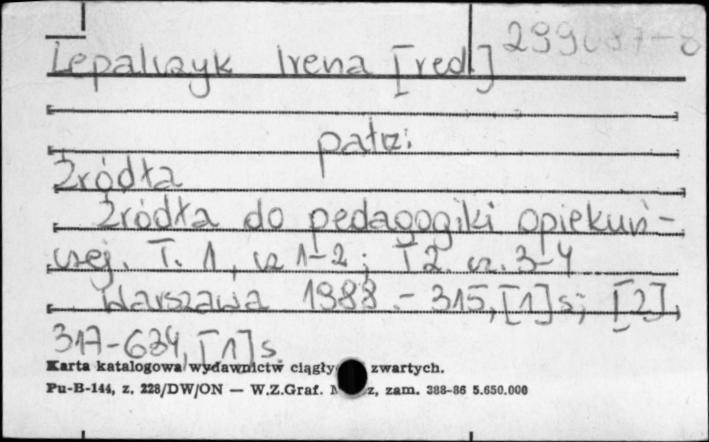 Lepalczyk Irena [red.]
patrz:
Źródła
Źródła do pedagogiki opiekuń-
czej. T. 1, cz 1-2; T 2. cz. 3-4
Warszawa 1988.- 315, [1] s; [2],
317-634, [1] s.
Karta katalogowa wydawnictw ciągły zwartych.
Pu-B-144, z. 228/DW/ON — W.Z.Graf. zam. 388-86 5.650.000